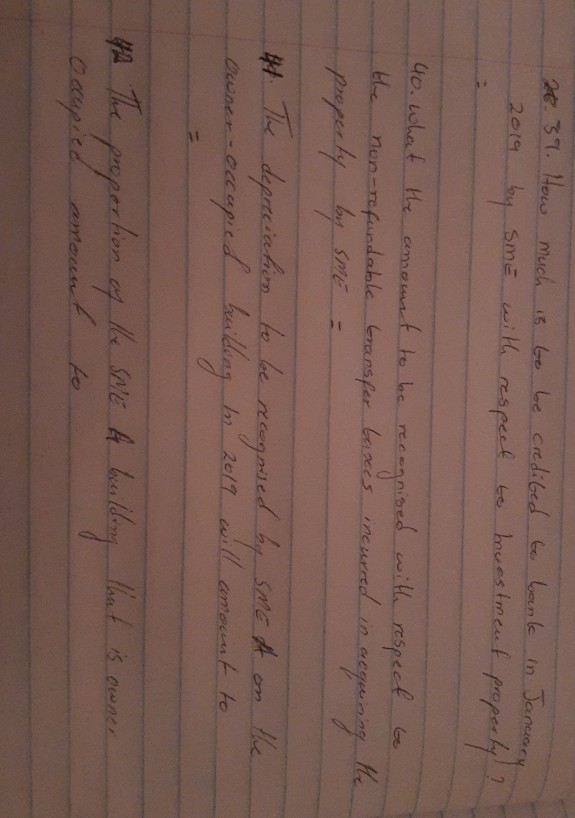 39. How much is to be credited to bank in January
2019 by SME with respect to Investment property?
=
40. What the amount to be recognised with respect to
the non-refundable transfer taxes incurred in acquiring the
property by SME =
41. The depreciation to be recognised by SME A on the
owner-occupied building in 2019 will amount to
=
42 The proportion of the SME A building that is owner
occupied amount to